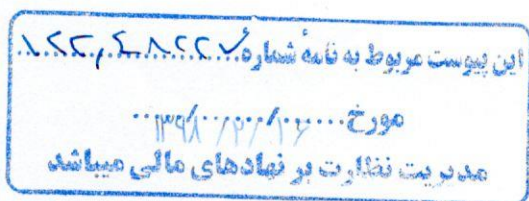 این پیوست مربوط به نامهٔ شماره ۱۲۲,۴۸۲۲۷
مورخ ۱۳۹۸/۲/۱۶
مدیریت نظارت بر نهادهای مالی میباشد